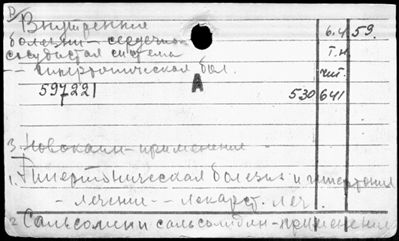 В/
Внутренние
болезни - сердечно-
сосудистая система
-- гипертоническая бол.
6.4 59
Т.Н.
чит.
597221
А
530 641
3. Новокаин - применение
1. Гипертоническая болезнь и гипертония
- лечение - лекарст. леч.
2. Сальсолин и сальсолидин - применение